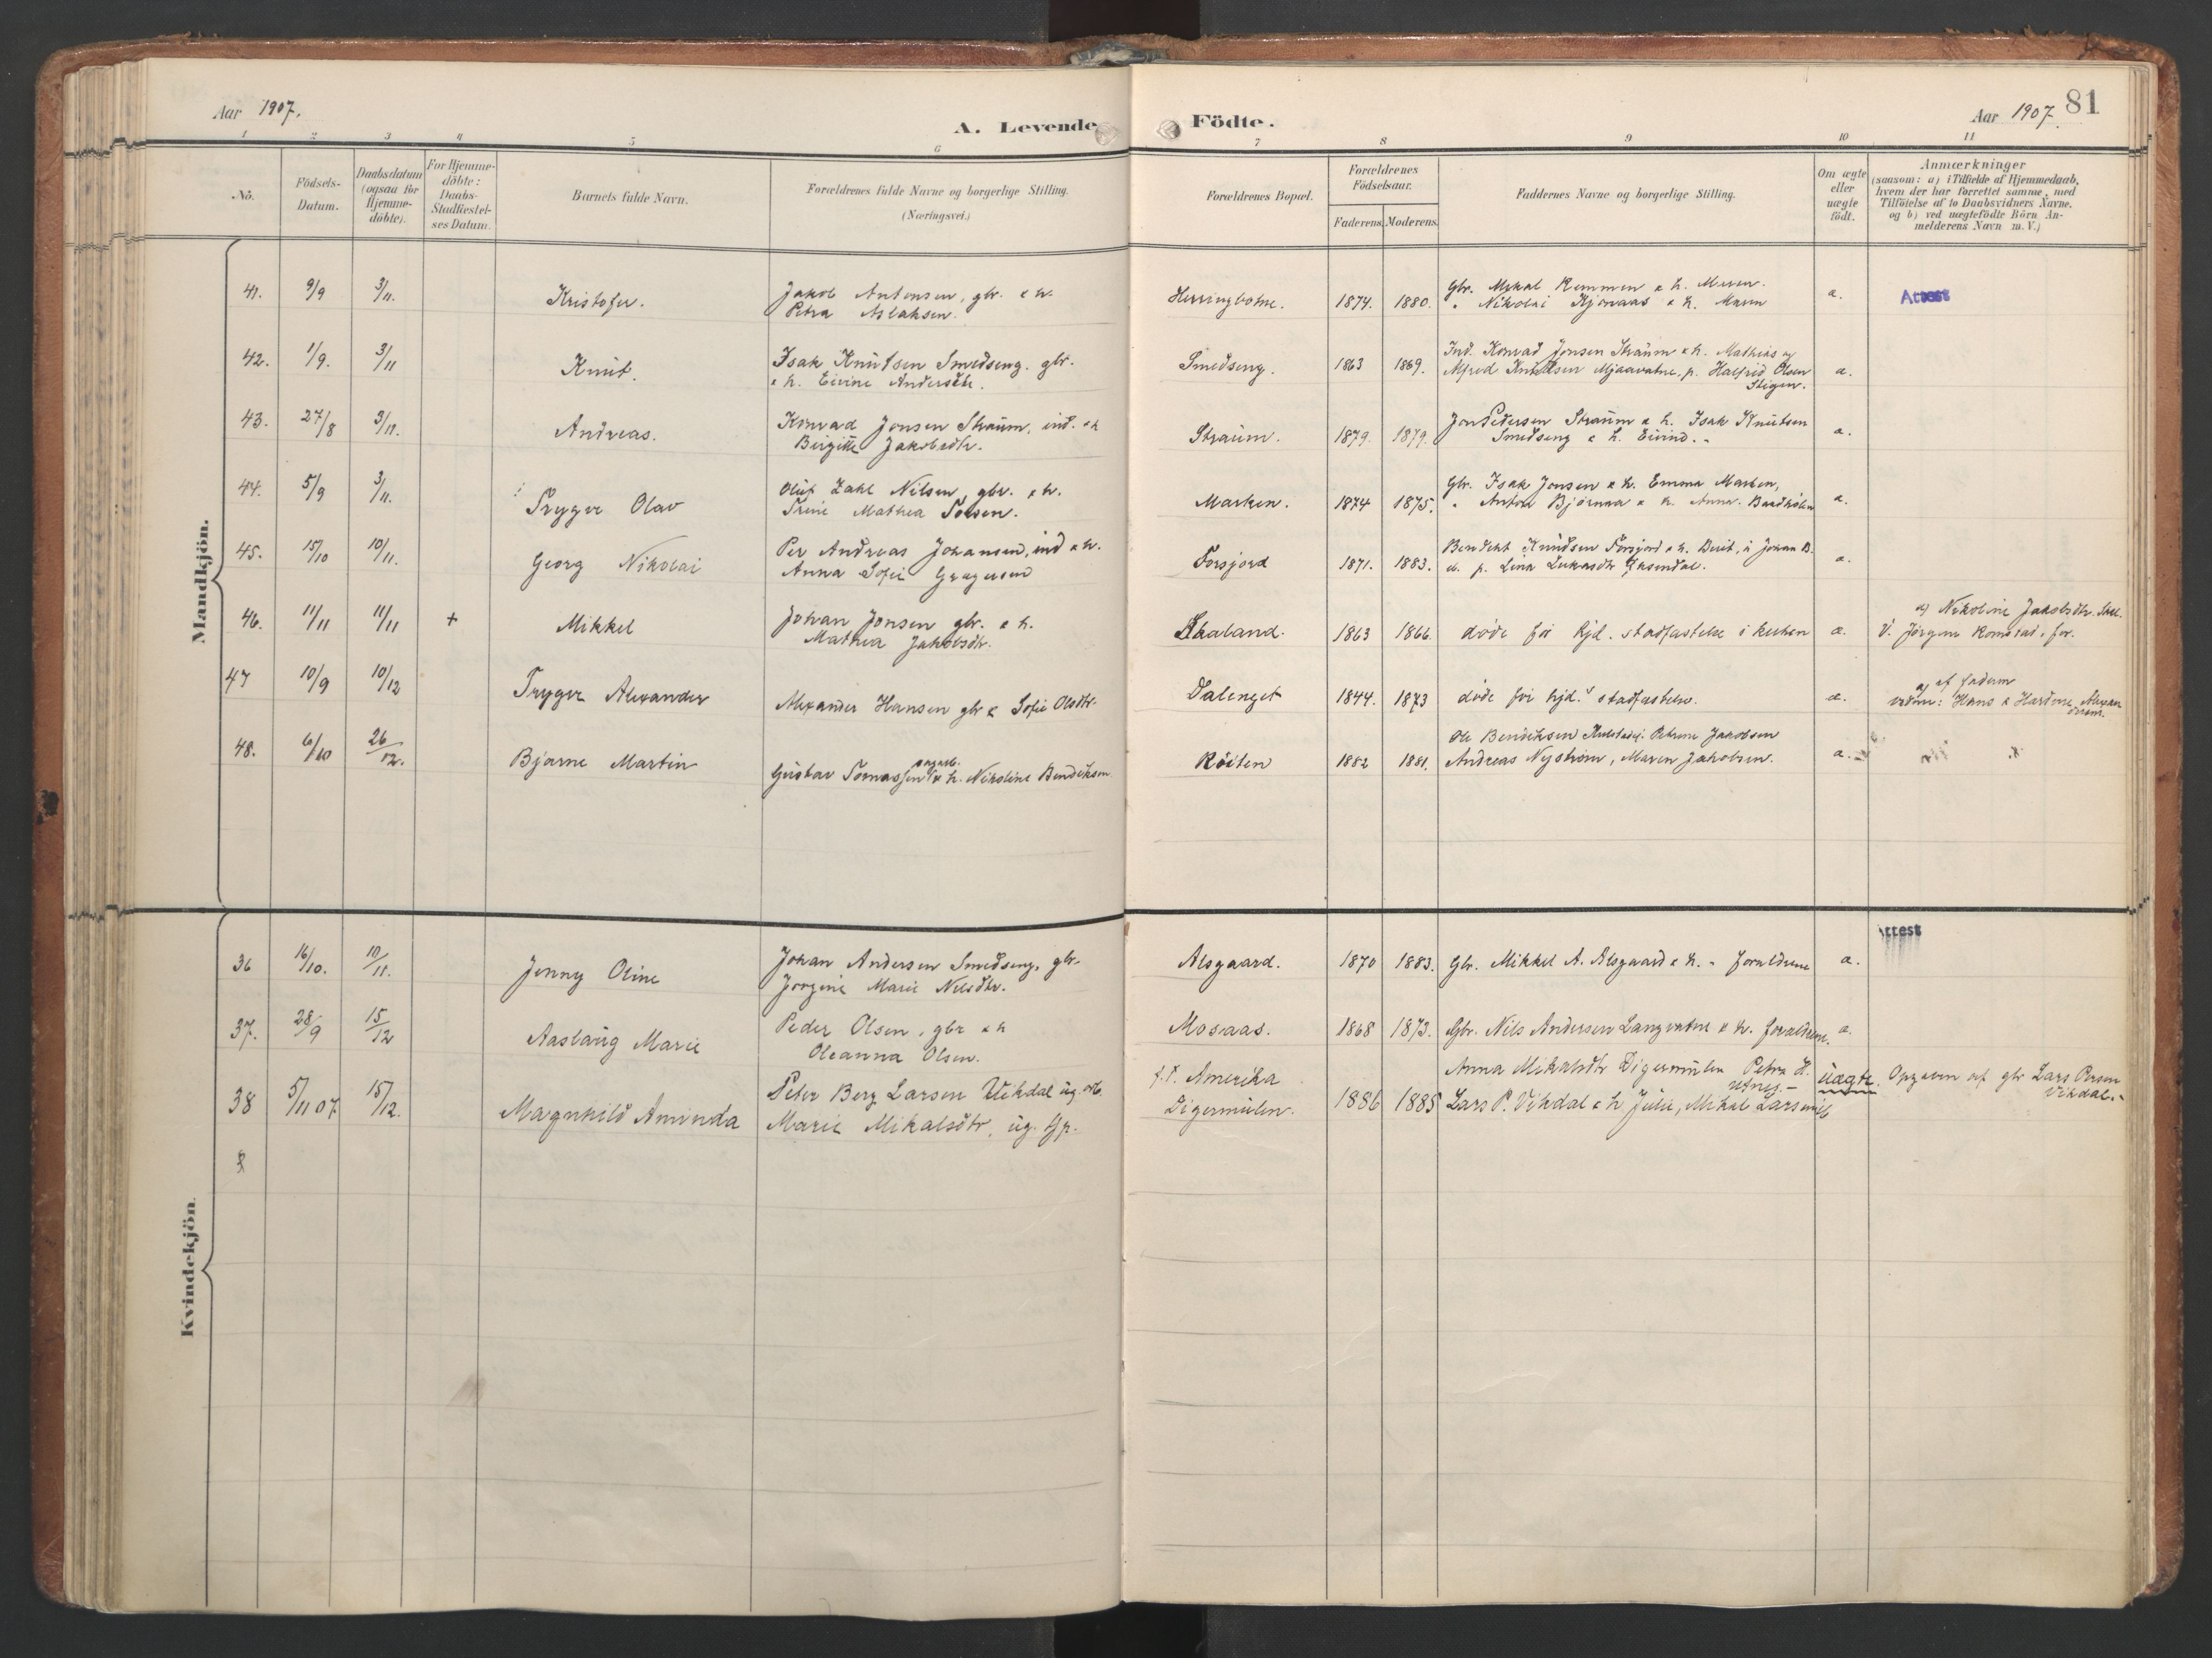 Aar 1907.
A. Levende
Födte.
Aar 1907. 81
1 2 3 4 5 6 7 8 9 10 11
No.
Födsels-
Datum.
Daabsdatum
(ogsaa for
Hjemme-
döbte).
For Hjemme-
döbte:
Daabs-
Stadfæstel-
ses Datum.
Barnets fulde Navn.
Forældrenes fulde Navne og borgerlige Stilling.
(Næringsvei.)
Forældrenes Bopæl.
Forældrenes
Födselsaar.
Faderens. Moderens.
Faddernes Navne og borgerlige Stilling.
Om ægte
eller
uægte
födt.
Anmærkninger
(saasom: a) i Tilfælde af Hjemmedaab,
hvem der har forrettet samme, med
Tilföielse af to Daabsvidners Navne.
og b) ved uægtefödte Börn An-
melderens Navn m. V.)
Mandkjön.
41. 9/9 3/11. Kristofer. Jakob Antonsen, gbr. & h.
Petra Aslaksen.
Herringbotne. 1874. 1880. Gbr. Mikal Remmen & h. Maren.
" Nikolai Kjönaas & h. Maren
æ. Attest
42. 1/9. 3/11 Knut. Isak Knutsen Smedseng. gbr.
& h. Eivine Andersdtr.
Smedseng. 1863 1869. Ind. Konrad Jonsen Straum & h. Mathias og
Alfred Knudsen Mjaavatne, p. Halfrid Olsen
Stigen.
æ.
43. 27/8 3/11. Andreas. Konrad Jonsen Straum. ind. & h
Birgitte Jakobsdtr.
Straum. 1879. 1879. Jon Pedersen Straum & h. Isak Knutsen
Smedseng & h. Eivind. -
æ.
44. 5/9 3/11. Trygve Olav Oluf Zahl Nilsen, gbr. & h.
Trine Mathea Olsen.
Marken. 1874 1875. Gbr. Isak Jonsen & h. Emma Marken,
" Anton Björnaa & h. Anna Baadholm
æ.
45. 15/10 10/11. Georg Nikolai Per Andreas Johansen, ind & h.
Anna Sofie Gregersen
Forsjord 1871. 1883. Bendikt Knudsen Forsjord & h. Berit, u. Johan B.
p. Lina Lukasdtr
æ.
46. 11/11 11/11 + Mikkel Johan Jonsen gbr. & h.
Mathea Jakobsdtr.
Skaland. 1863 1866. døde før hjd. stadfæstelse i kirken æ. a) Nikoline Jakobsdtr.
V. Jørgine
47 10/9 10/12 Trygve Alexander Alexander Hansen gbr & Sofie Olsdtr.
Dalenget 1844. 1873 døde før hjd.s stadfæstelse. æ. a) af faderen
vidner: Hans &
48. 6/10 26/12. Bjarne Martin Gustav Tomassen & h. Nikoline Bendiksen
Röiten 1882 1881. Ole Bendiksen Petrine Jakobsen
Andreas Nyström, Maren Jakobsen.
æ.
Kvindekjön.
36 16/10. 10/11. Jenny Oline Johan Andersen Smedseng, gbr.
Jörgine Marie Nilsdtr.
Alsgaard. 1870 1883. Gbr. Mikkel A. Alsgaard & h. - forældrene æ. Attest
37. 28/9 15/12 Aaslaug Marie Peder Olsen, gbr & h
Oleanna Olsen.
Mosaas. 1868 1873. Gbr. Nils Andersen Langvatne & h. forældrene. æ.
38 5/11 07. 15/12. Magnhild Aminda Peter Berg Larsen Vikdal ug. arb.
Marie Mikalsdtr, ug. tjp.
f. t. Amerika
Digermulen. 1886 1885 Anna Mikalsdtr Digermulen Petra H.
Utnes. -
Lars P. Vikdal & h Julie, Mikal Larsen
uægte. Opgaven af gbr Lars Persen
Vikdal. -